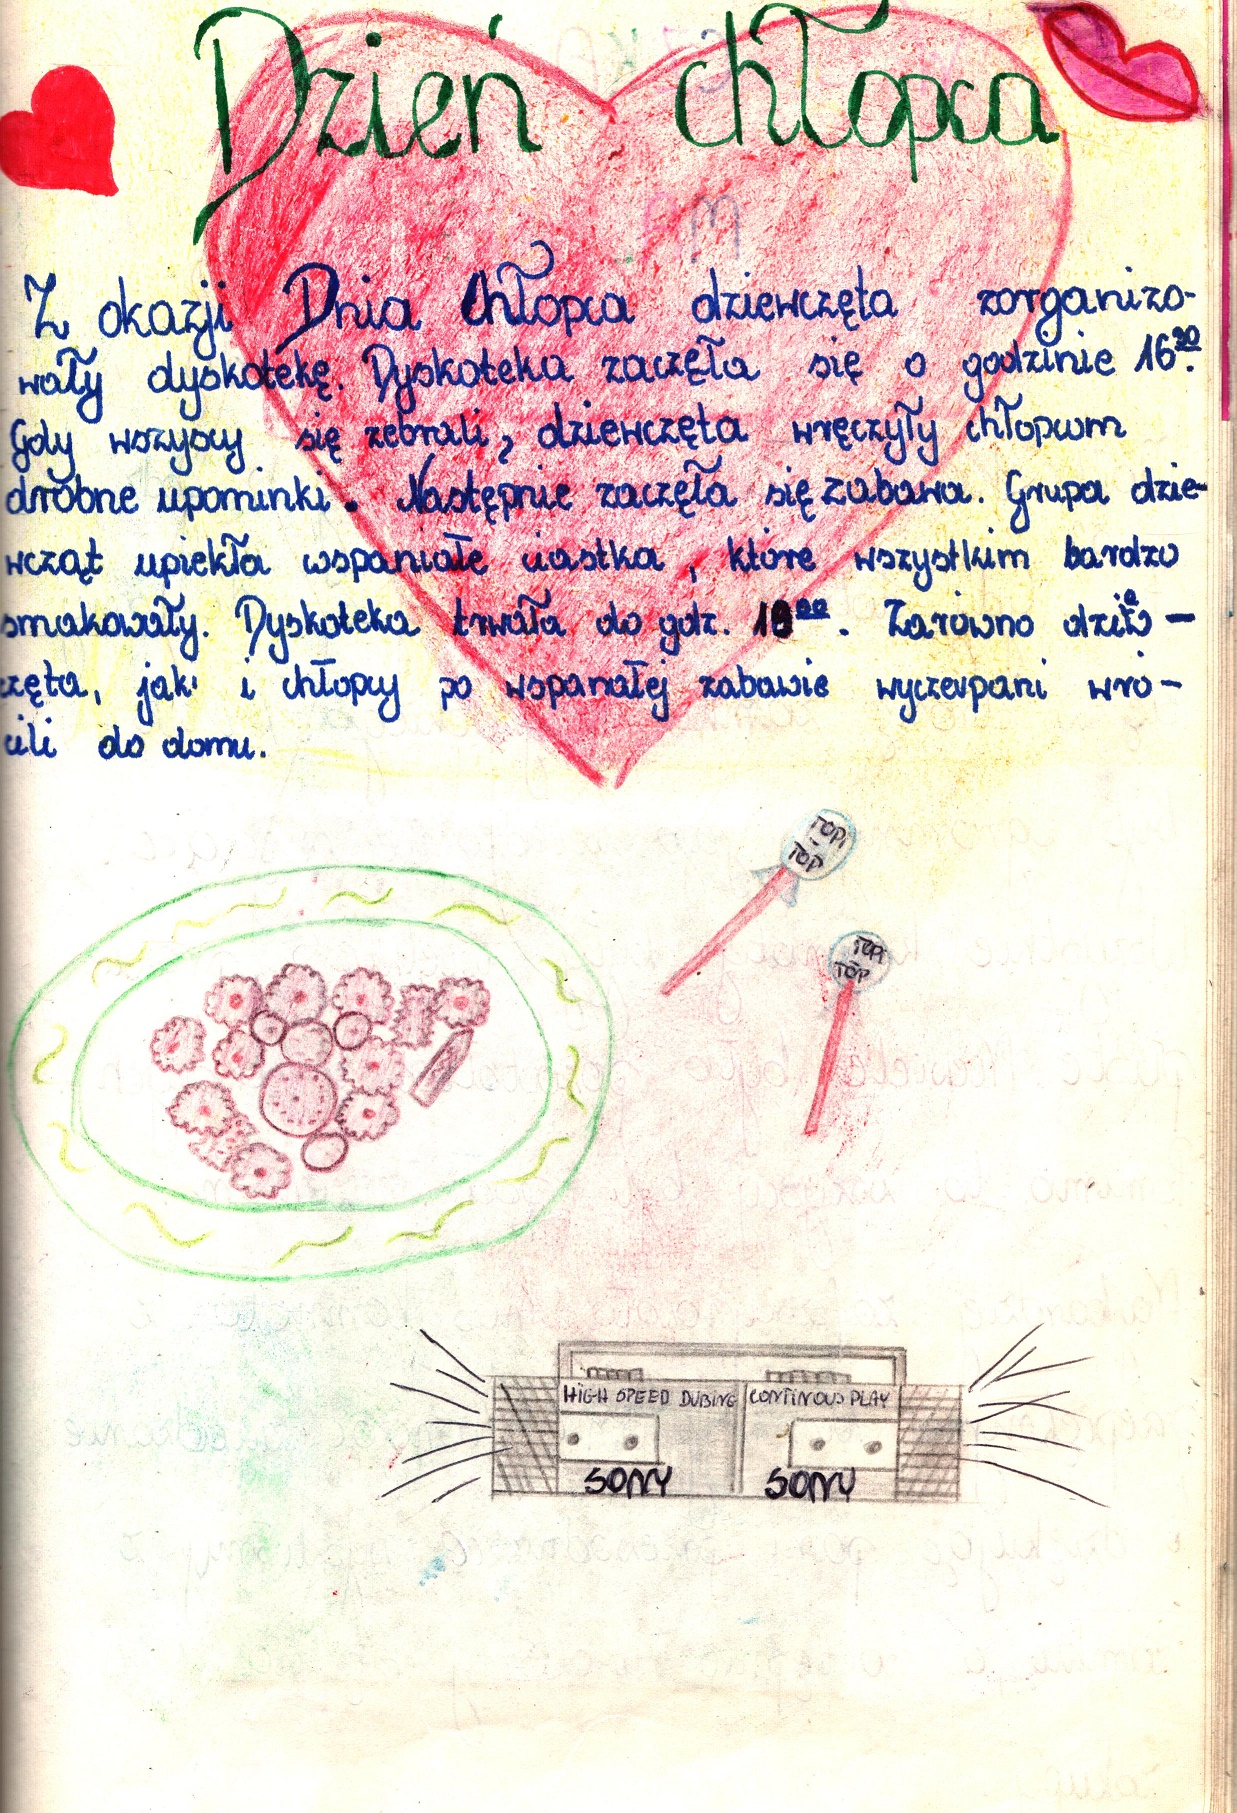 Dzień chłopca
Z okazji Dnia Chłopca dziewczęta zorganizo-
wały dyskotekę. Dyskoteka zaczęła się o godzinie 16³⁰.
Gdy wszyscy się zebrali, dziewczęta wręczyły chłopcom
drobne upominki. Następnie zaczęła się zabawa. Grupa dzie-
wcząt upiekła wspaniałe ciastka, które wszystkim bardzo
smakowały. Dyskoteka trwała do godz. 19⁰⁰. Zarówno dziew-
częta, jak i chłopcy po wspanałej zabawie wyczerpani wró-
cili do domu.
TOPI
TOP
TOPI
TOP
HIGH SPEED DUBING CONTINOUS PLAY
SONY SONY